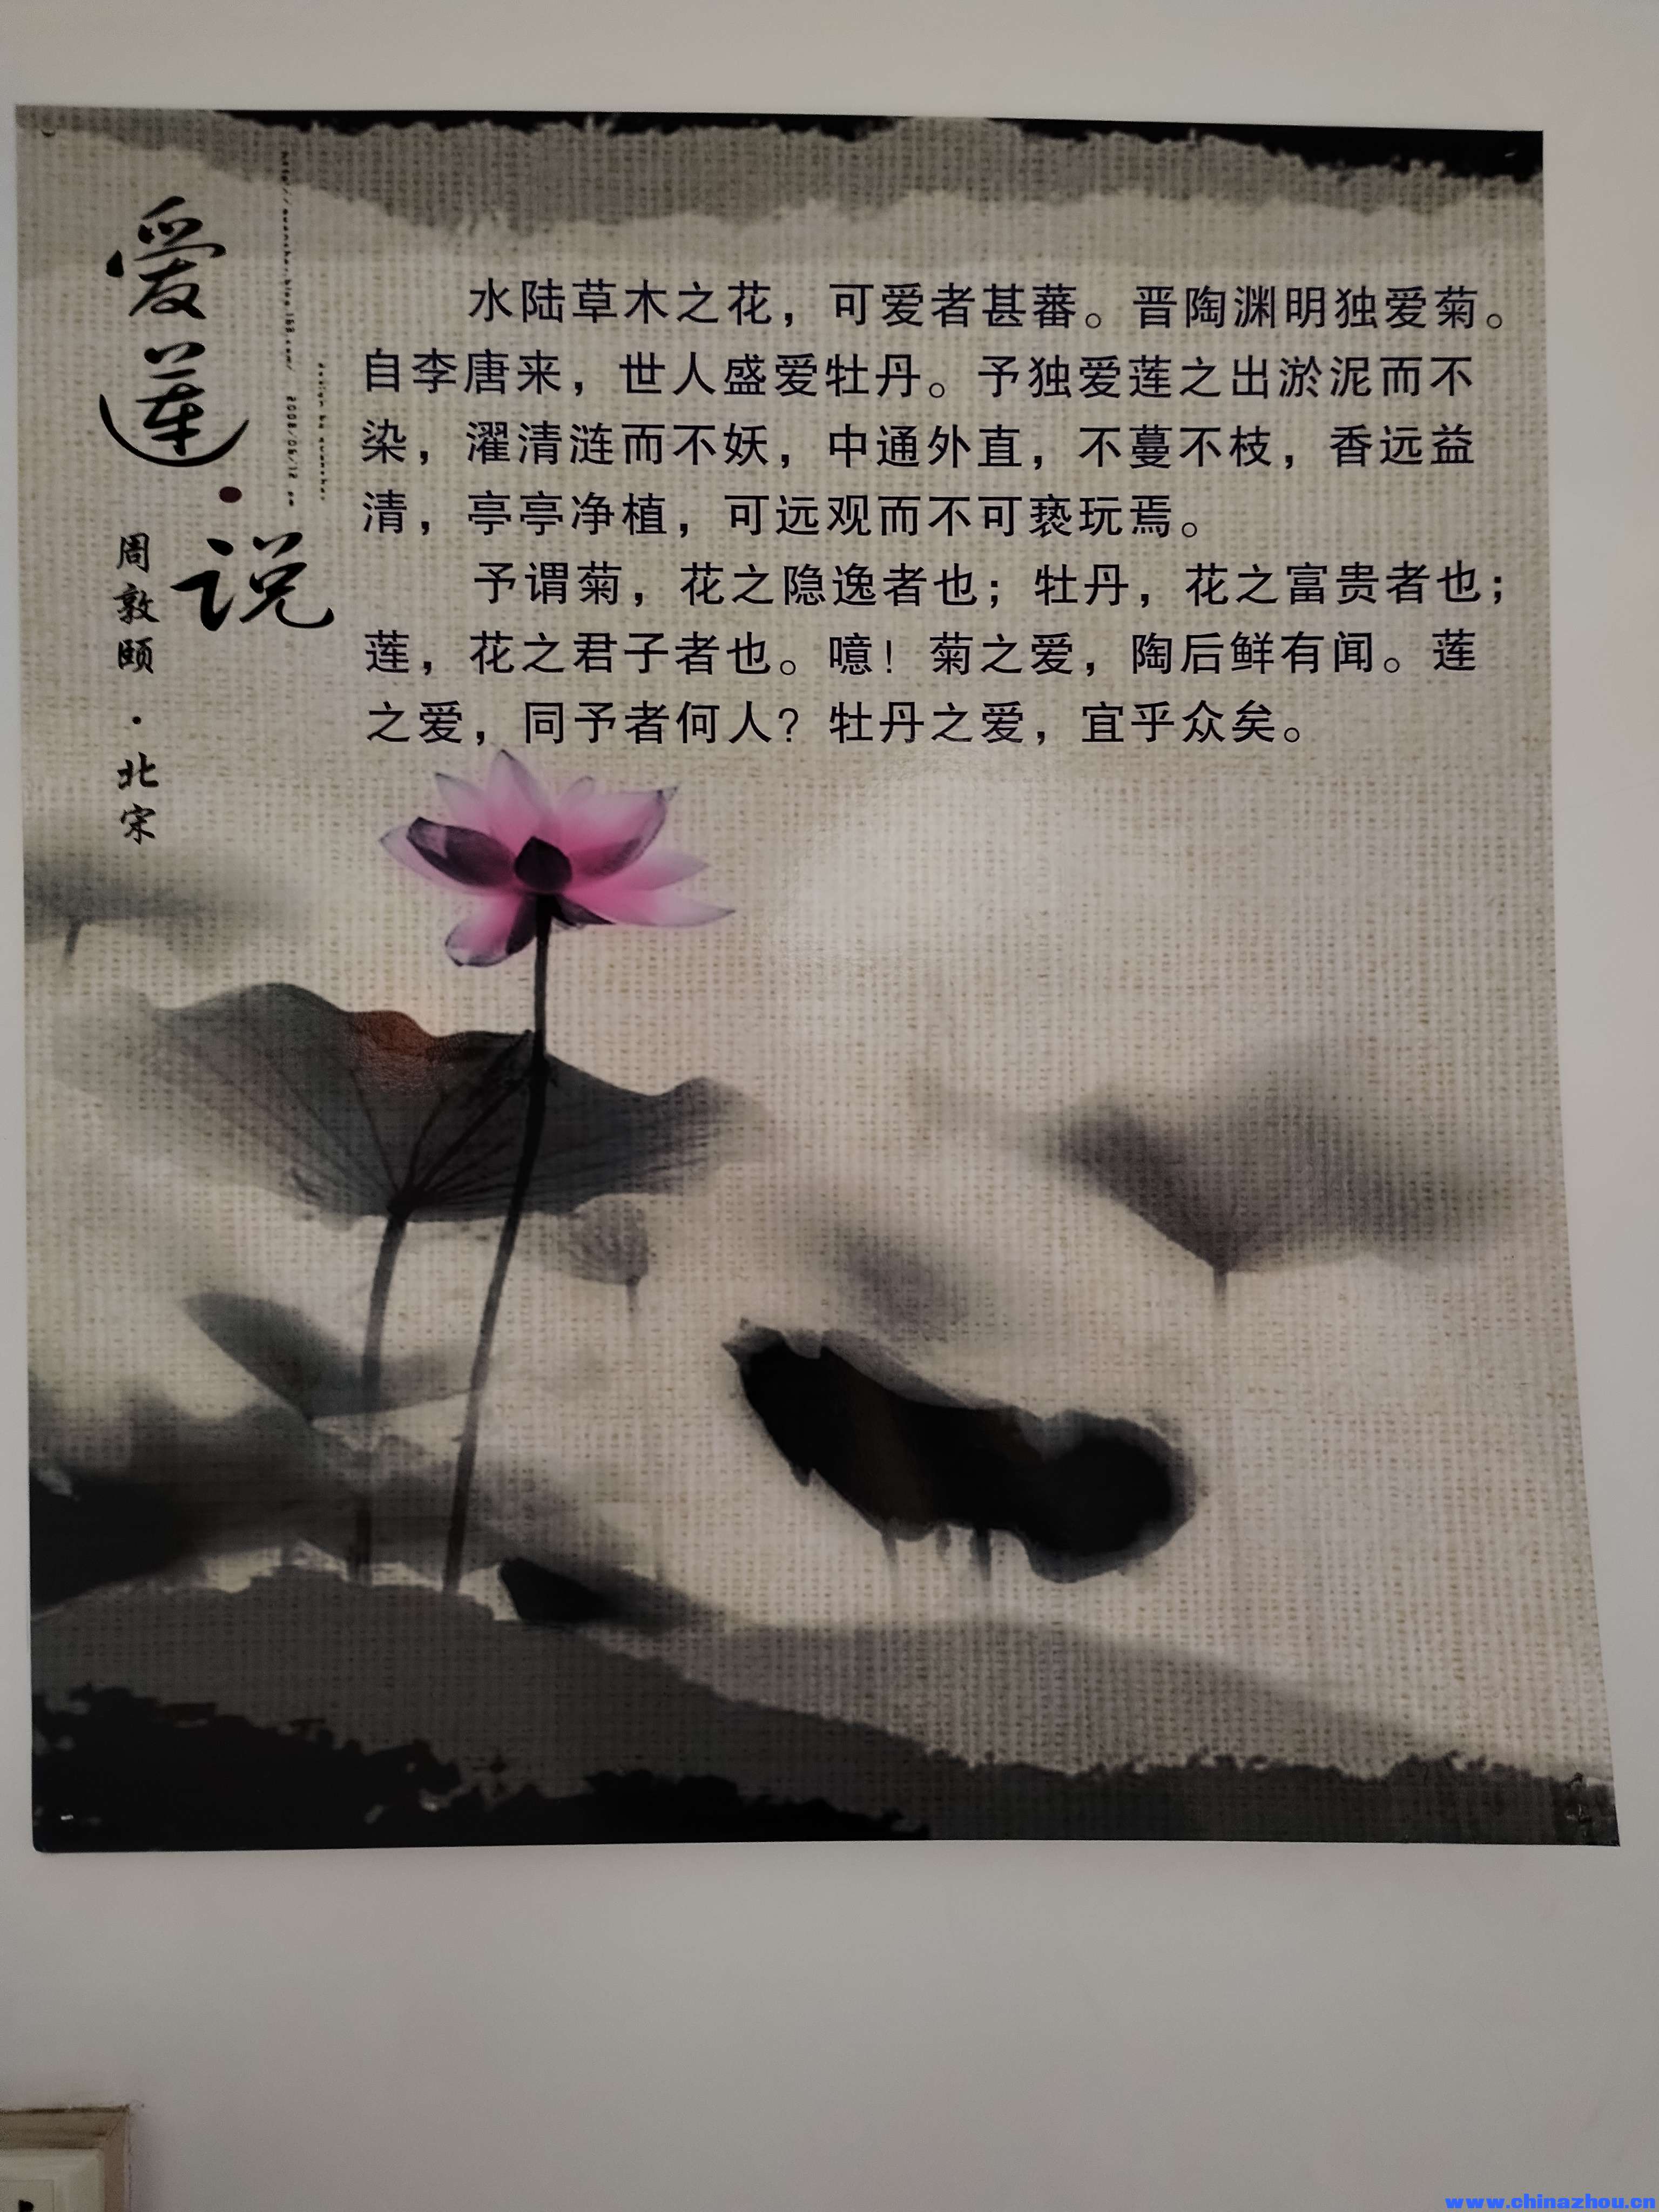 爱莲·说
周敦颐·北宋
水陆草木之花，可爱者甚蕃。晋陶渊明独爱菊。
自李唐来，世人盛爱牡丹。予独爱莲之出淤泥而不
染，濯清涟而不妖，中通外直，不蔓不枝，香远益
清，亭亭净植，可远观而不可亵玩焉。
予谓菊，花之隐逸者也；牡丹，花之富贵者也；
莲，花之君子者也。噫！菊之爱，陶后鲜有闻。莲
之爱，同予者何人？牡丹之爱，宜乎众矣。
www.chinazhou.cn